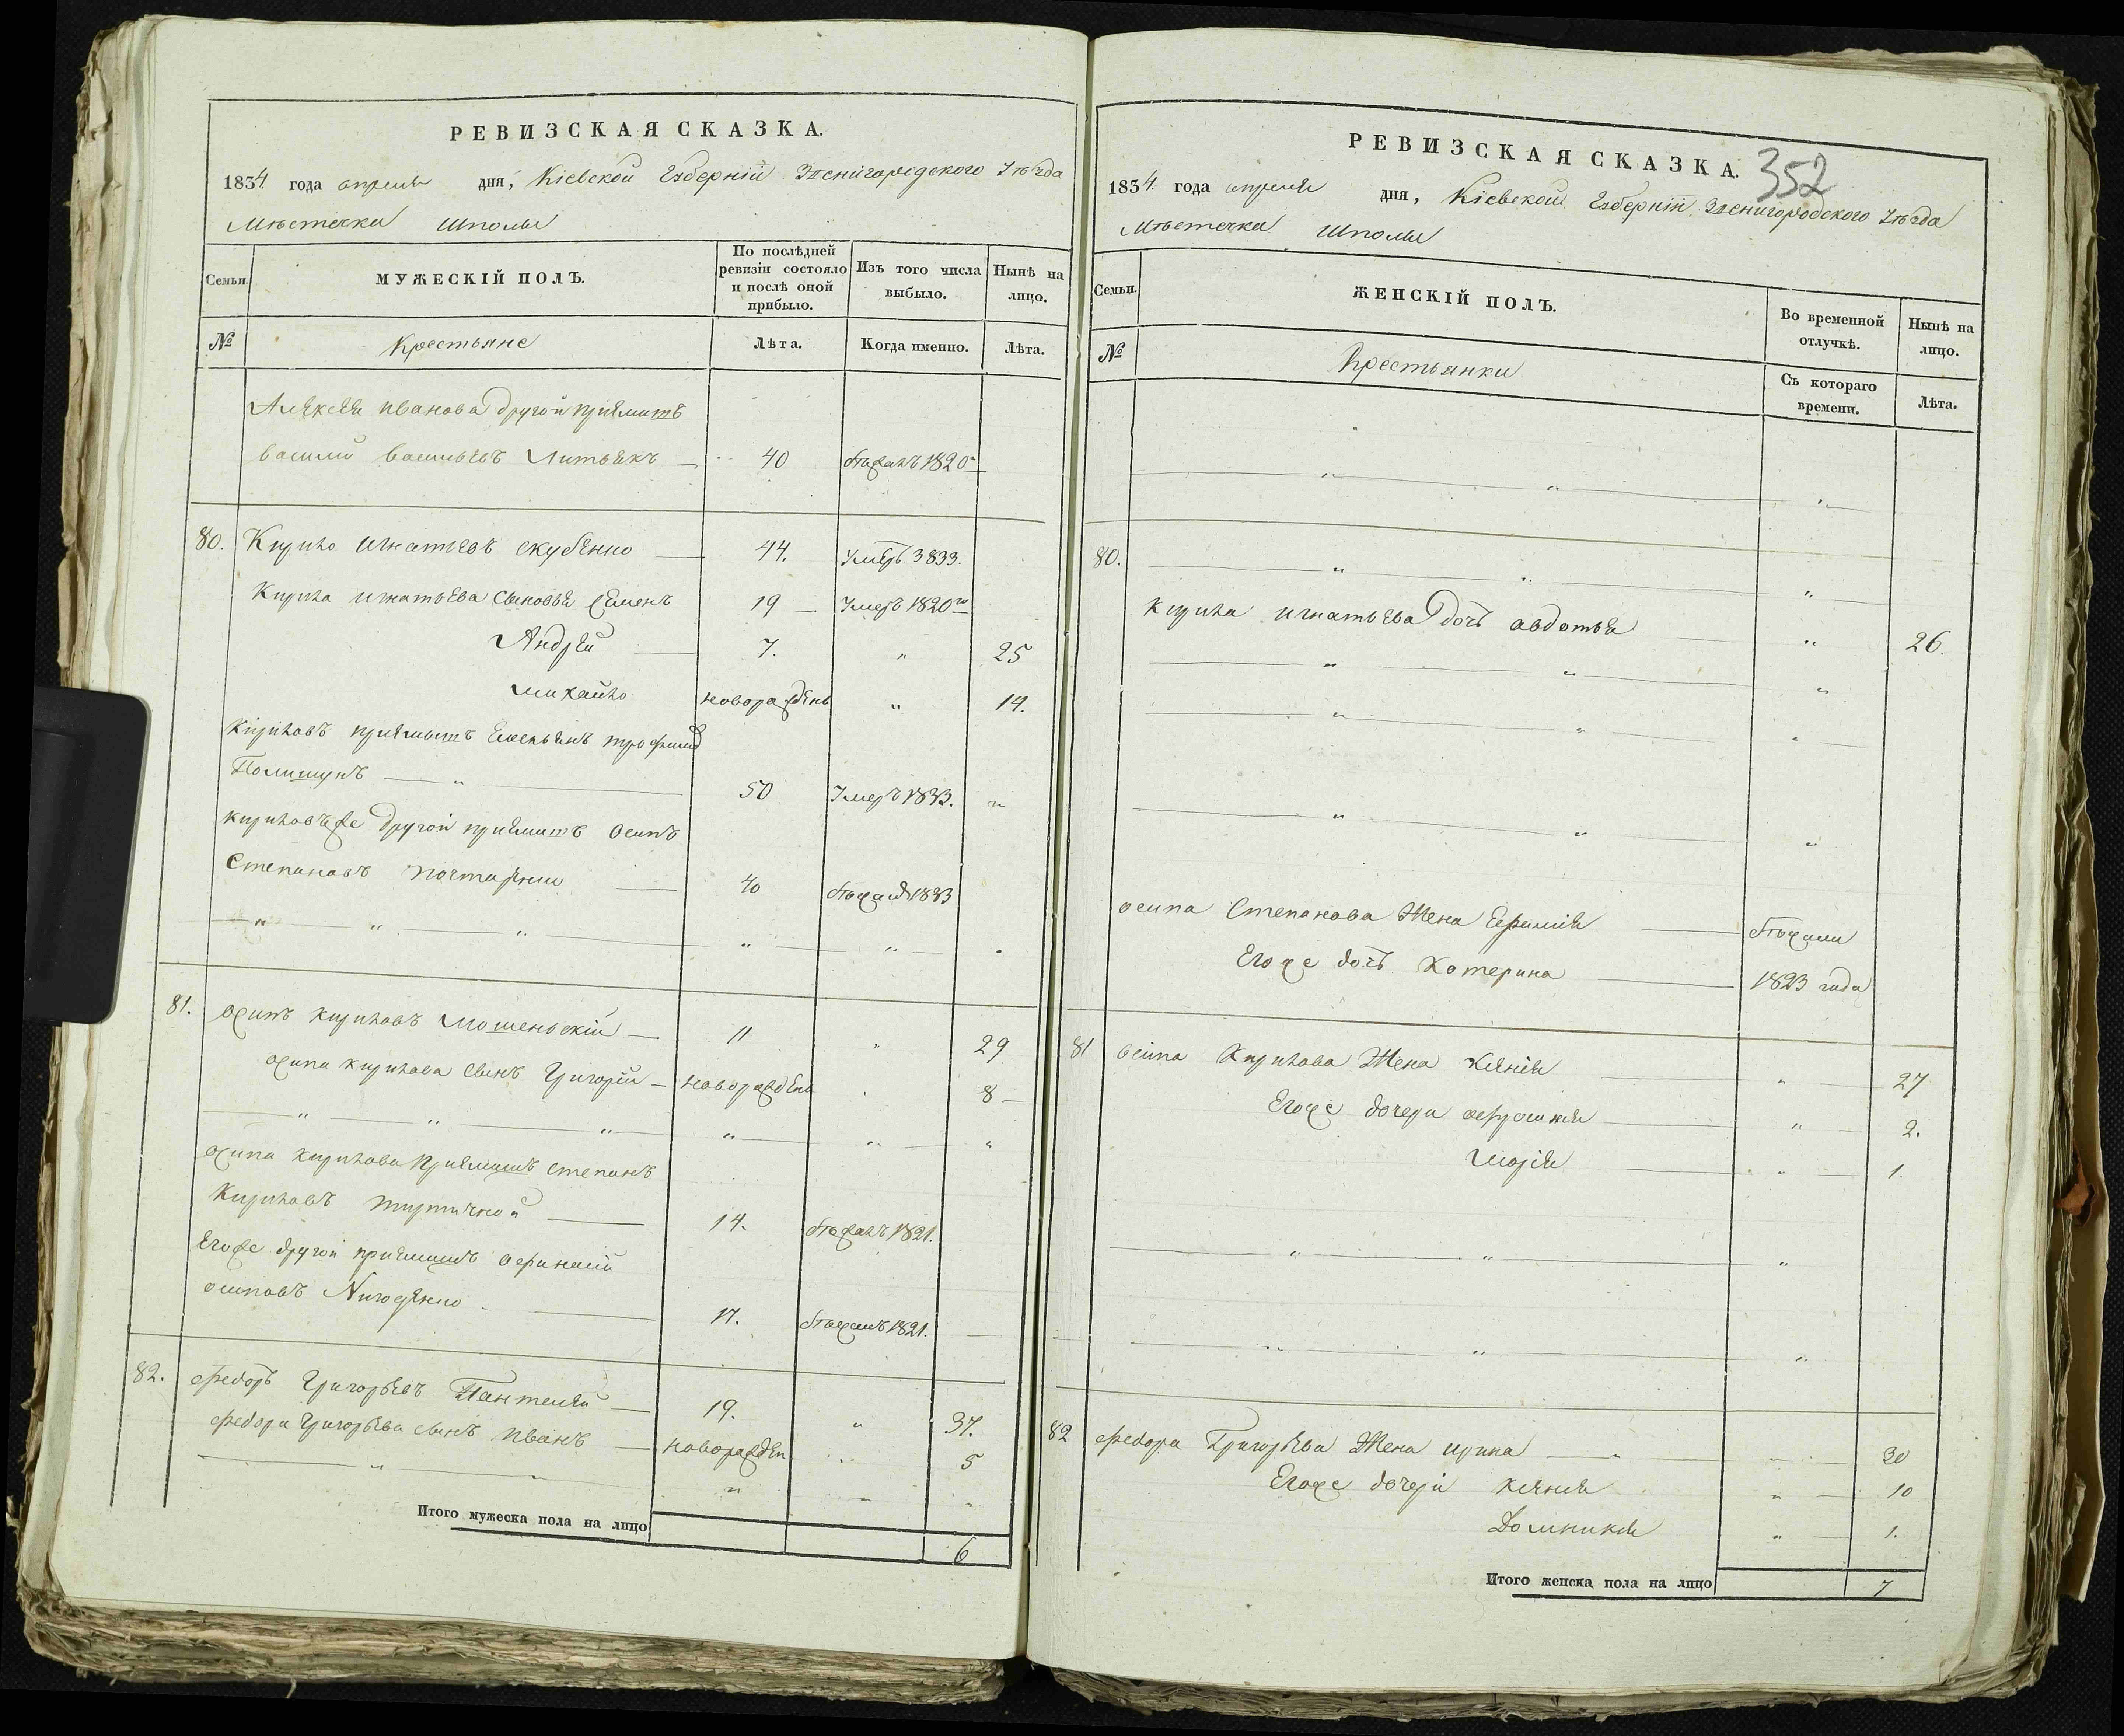 РЕВИЗСКАЯ СКАЗКА.
1834 года апреля дня, Кіевской Губерніи Звенигородского Уѣзда
Мѣстечка Шполы
Семьи.
МУЖЕСКІЙ ПОЛЪ.
По послѣдней ревизіи состояло и послѣ оной прибыло.
Изъ того числа выбыло.
Нынѣ на лицо.
№
Крестьяне
Лѣта.
Когда именно.
Лѣта.
Алексѣя Иванова другой приймитъ
Василий Васильевъ — 40 1820
80. Кирило Игнатьевъ 44. Умеръ 1833.
Кирила Игнатьева сыновья Семенъ 19 — Умеръ 1820го
Андрей — 7. " 25
Михайло новорожденъ " 14.
Кириловъ приймытъ Емельянъ
Полищукъ — " — 50 Умеръ 1833. "
Кириловъ же другой приймитъ Осипъ
Степановъ — 40
81. Осипъ Кириловъ — 11 " 29
Осипа Кирилова сынъ Григорій — новорожденъ 8 —
Осипа Кирилова приймытъ Степанъ
Кириловъ — 14. 1821.
Егоже другой приймытъ
Осиповъ — 17. 1821.
82. Федоръ Григорьевъ Пантелей — 19. " 37.
Федора Григорьева сынъ Иванъ — новорожден 5
Итого мужеска пола на лицо
6
РЕВИЗСКАЯ СКАЗКА.
352
1834 года апреля дня, Кіевской Губерніи Звенигородского Уѣзда
Мѣстечка Шполы
Семьи.
ЖЕНСКІЙ ПОЛЪ.
Во временной отлучкѣ.
Нынѣ на лицо.
№
Крестьянки
Съ котораго времени.
Лѣта.
80.
Кирила Игнатьева дочь Авдотья — " 26.
Осипа Степанова Жена —
Егоже дочь Катерина — 1823 года
81 Осипа Кирилова Жена Ксенія — " 27
Егоже дочери — " 2.
Марія — " 1.
82 Федора Григорьева Жена Ирина — 30
Егоже дочери Ксенія " 10
Домникія " 1.
Итого женска пола на лицо
7